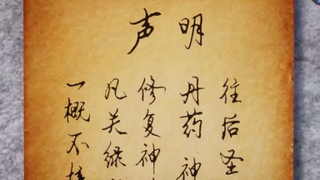 声明
往后圣
丹药 神
修复神
凡关
一概不